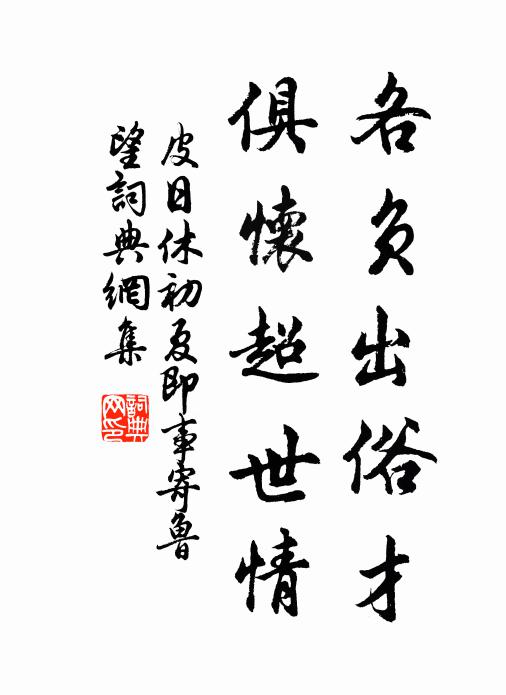 各負出俗才
俱懷超世情
皮日休初夏即事寄魯
望詞典網集
詞典
网印